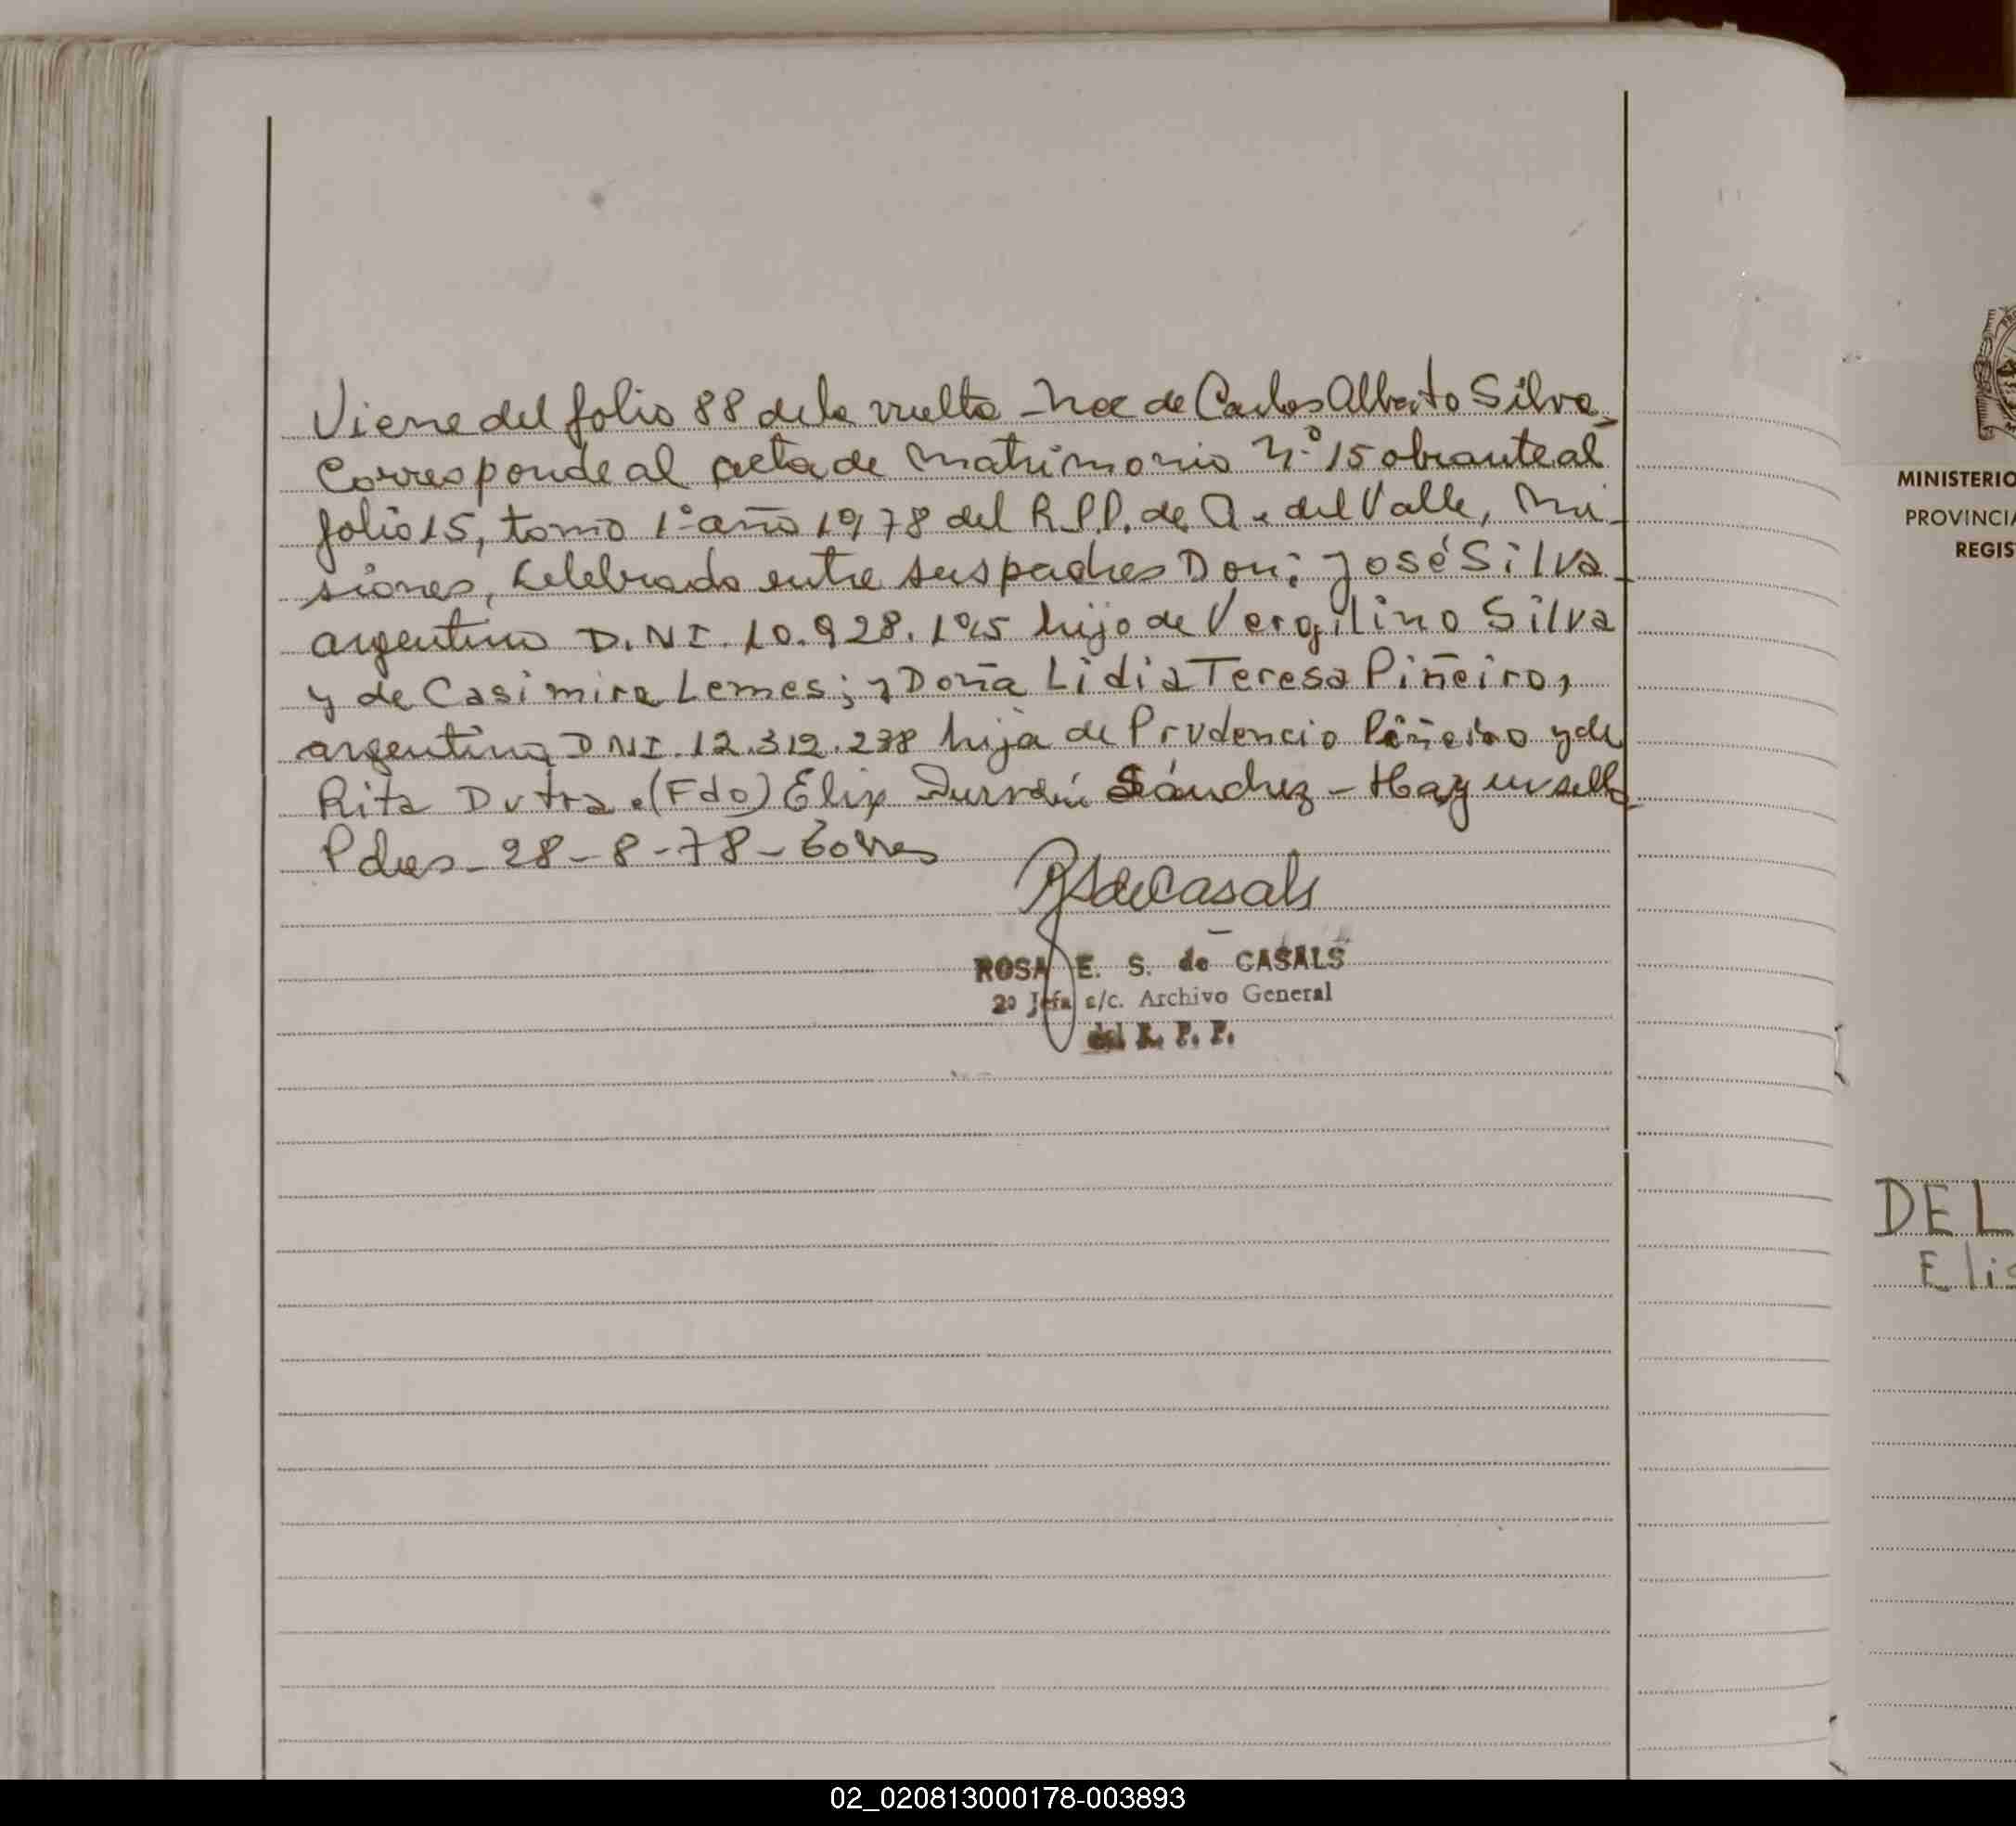 Viene del folio 88 dela vuelta - Nac de Carlos Alberto Silva -
Corresponde al acta de Matrimonio N.º 15 obrante al
folio 15, tomo 1º año 1978 del R.P.P. de A. del Valle, Mi-
siones, Celebrado entre sus padres Don: José Silva
argentino D.N.I. 10.928.195 hijo de Vergilino Silva
y de Casimira Lemes; y Doña Lidia Teresa Piñeiro,
argentina DNI 12.312.238 hija de Prudencio Piñeiro y de
Rita Dutra. (Fdo) Elix Sánchez - Hay un sello
Pdas - 28-8-78 -
RSdeCasals
ROSA E. S. de CASALS
2º Jefa a/c. Archivo General
del R. P. P.
MINISTERIO
PROVINCIA
REGIS
DEL
Elis
02_020813000178-003893